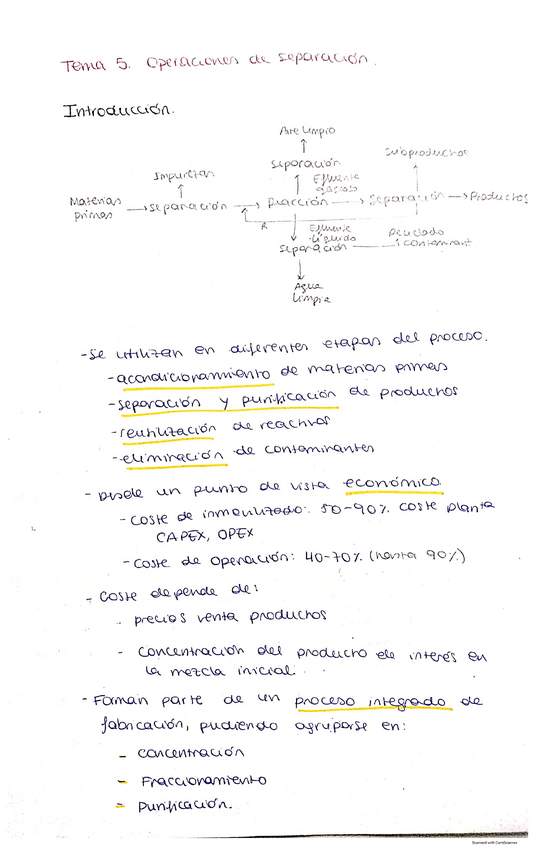 Tema 5. Operaciones de separación.
Introducción.
Aire limpio
Separación
Subproductos
Impurezas
Efluente
gaseoso
Materias
primas
Separación
Reacción
Separación
Productos
R
Efluente
líquido
Separación
contaminant
Agua
limpia
- Se utilizan en diferentes etapas del proceso.
- acondicionamiento de materias primas
- separación y purificación de productos
- reutilización de reactivos
- eliminación de contaminantes
- Desde un punto de vista económico
- Coste de inmovilizado: 50-90% coste planta
CAPEX, OPEX
- Coste de operación: 40-70% (hasta 90%)
- Coste depende de:
- precios venta productos
- concentración del producto de interés en
la mezcla inicial.
- Forman parte de un proceso integrado de
fabricación, pudiendo agruparse en:
- Concentración
- Fraccionamiento
- Purificación.
Scanned with CamScanner